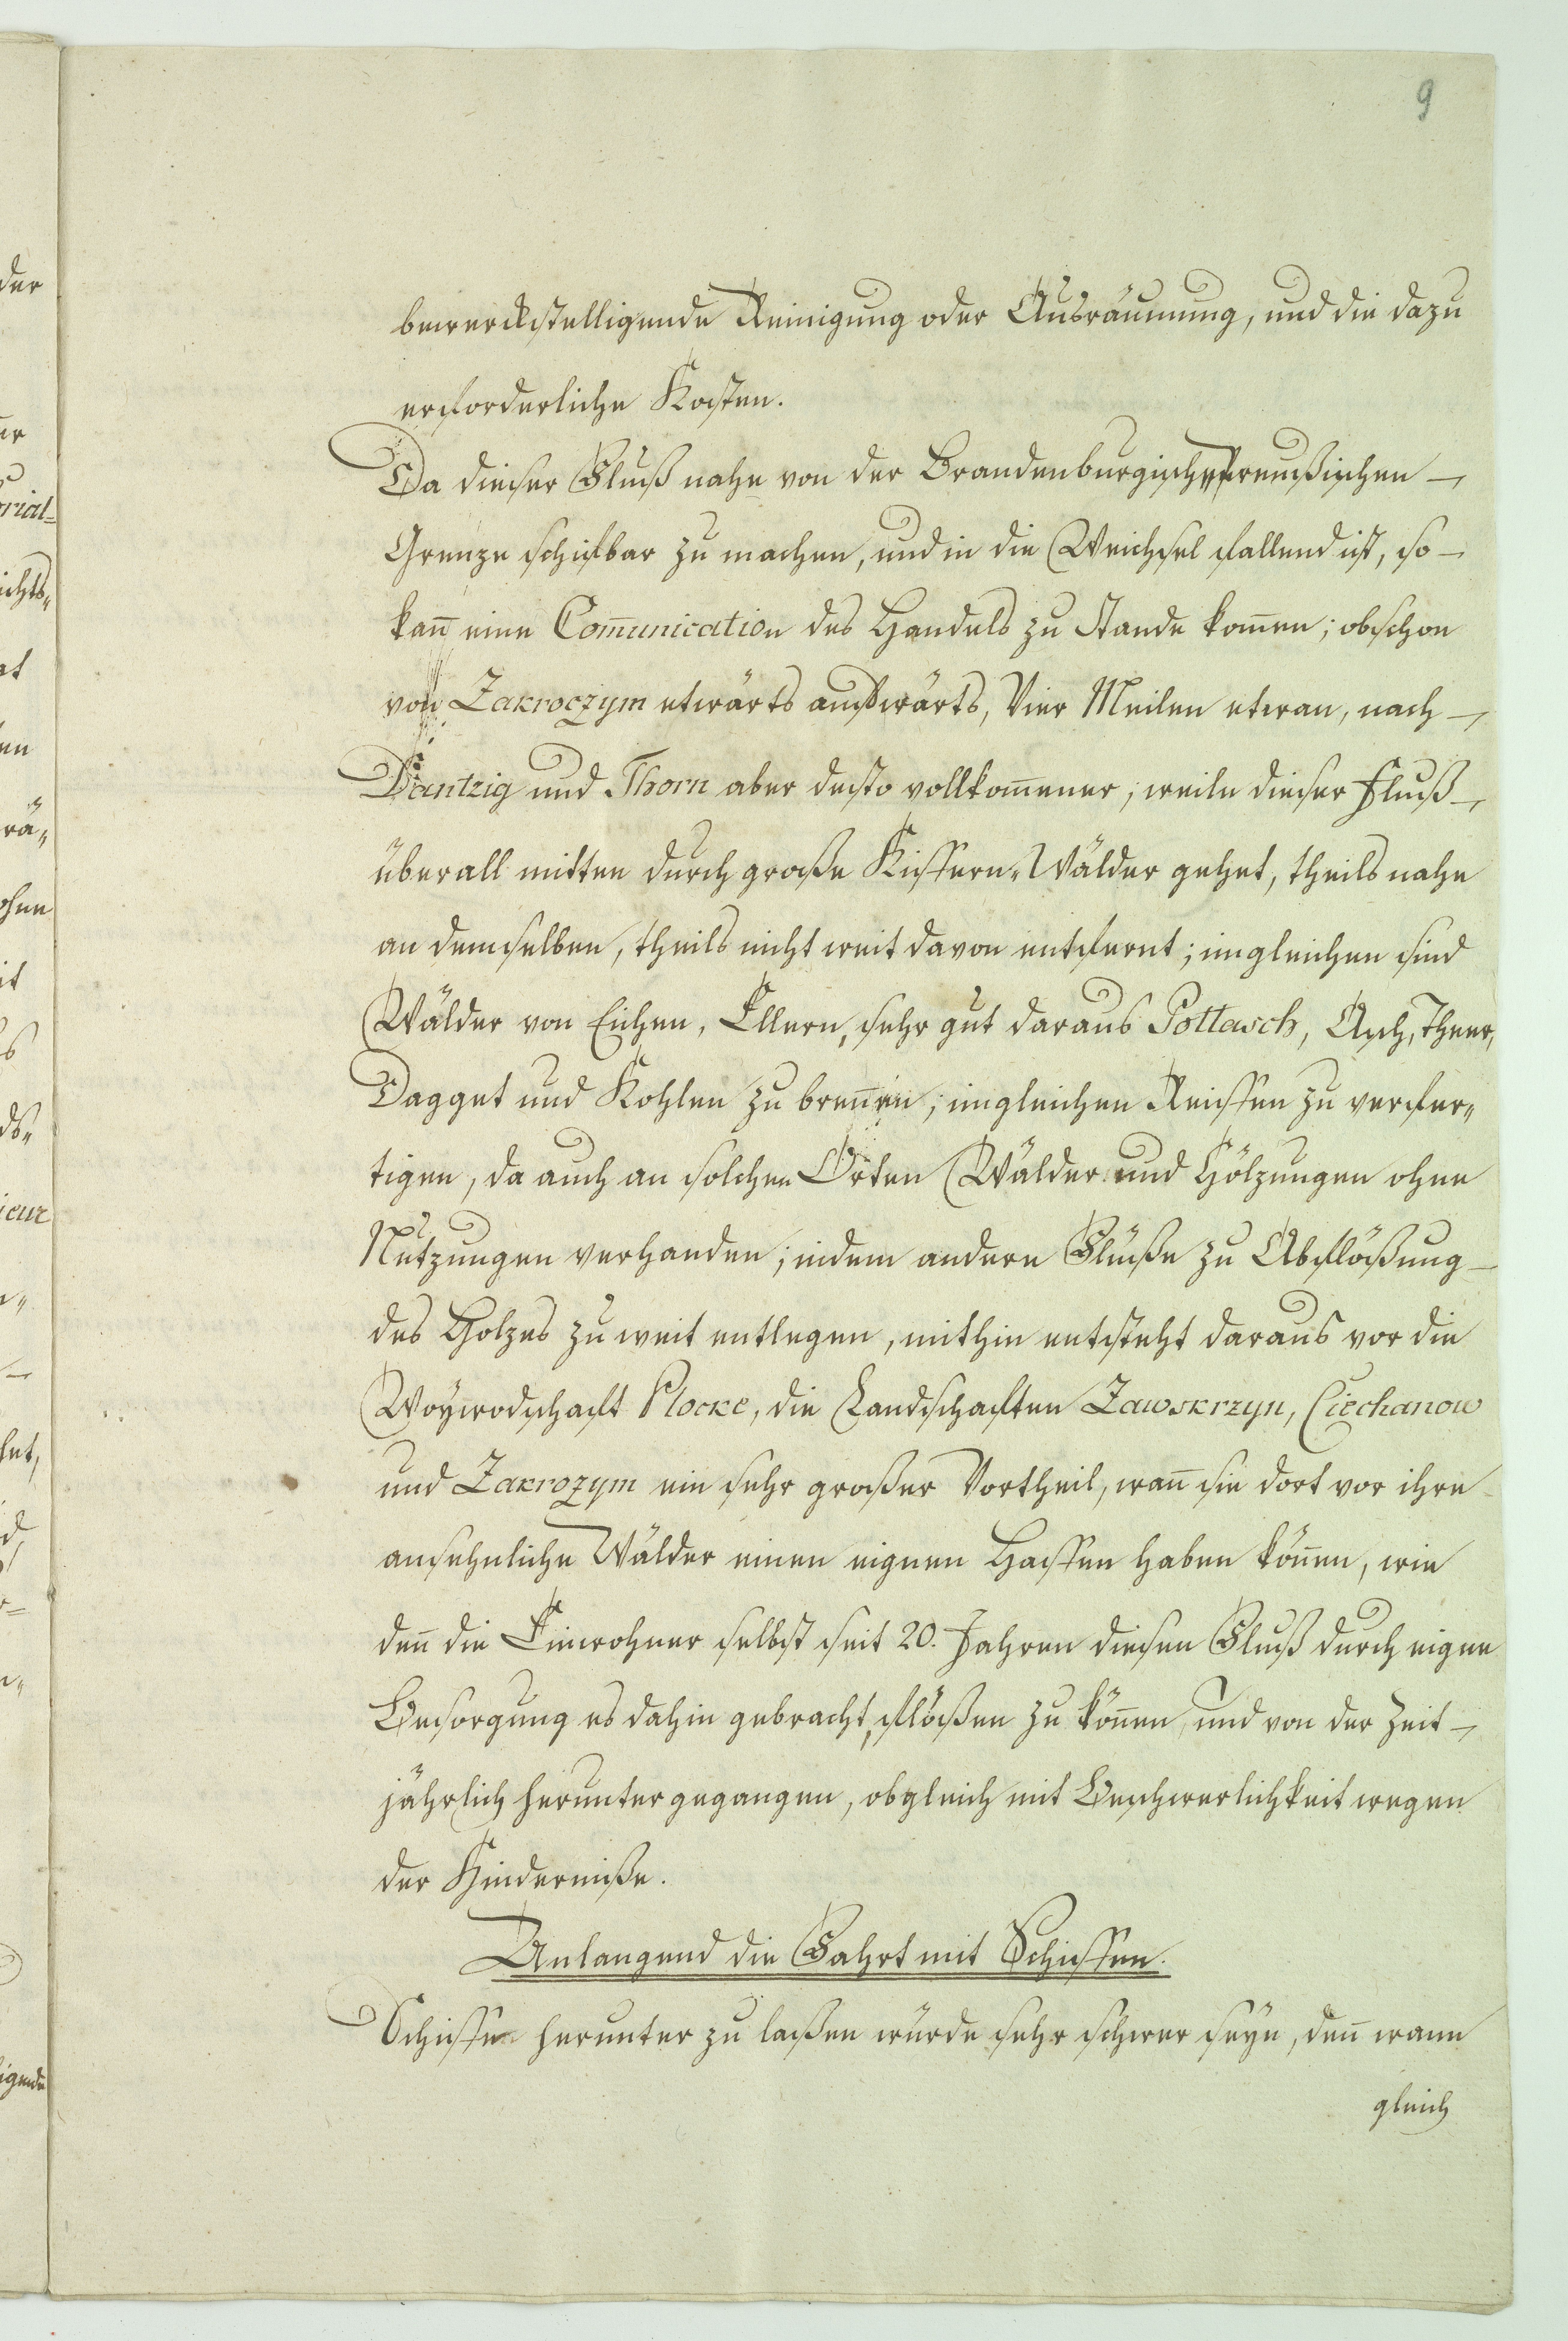 9
bewerckstelligende Reinigung oder Ausräumung, und die dazu
erforderliche Kosten.
Da dieser Fluß nahe von der Brandenburgisch=Preußischen
Grenze schifbar zu machen, und in die Weichsel fallend ist, so
kan̄ eine Com̄unication des Handels zu Stande kom̄en; obschon
von Zakroczym etwärts aufwärts, Vier Meilen etwan, nach
Dantzig und Thorn aber desto vollkom̄ener; weile dieser Fluß
überall mitten durch große Kiffern=Wälder gehet, theils nahe
an demselben, theils nicht weit davon entfernt; imgleichen sind
Wälder von Eichen, Ellern, sehr gut daraus Pottasch, Asch, Theer,
Dagget und Kohlen zu bren̄en; imgleichen Reiffen zu verfer=
tigen, da auch an solchen Orten Wälder und Hölzungen ohne
Nutzungen verhanden; indem andere Flüße zu Abflößung
des Holzes zu weit entlegen, mithin entsteht daraus vor die
Woywodschaft Plocke, die Landschaften Zawskrzyn, Ciechanow
und Zakrozym ein sehr großer Vortheil, wan̄ sie dort vor ihre
ansehnliche Wälder einen eignen Haffen haben kön̄en, wie
den̄ die Einwohner selbst seit 20. Jahren diesen Fluß durch eigne
Besorgung es dahin gebracht, flößen zu kön̄en, und von der Zeit
jährlich herunter gegangen, obgleich mit Beschwerlichkeit wegen
der Hinderniße.
Anlangend die Fahrt mit Schiffen.
Schiffe herunter zu laßen würde sehr schwer seyn, den̄ wann
gleich